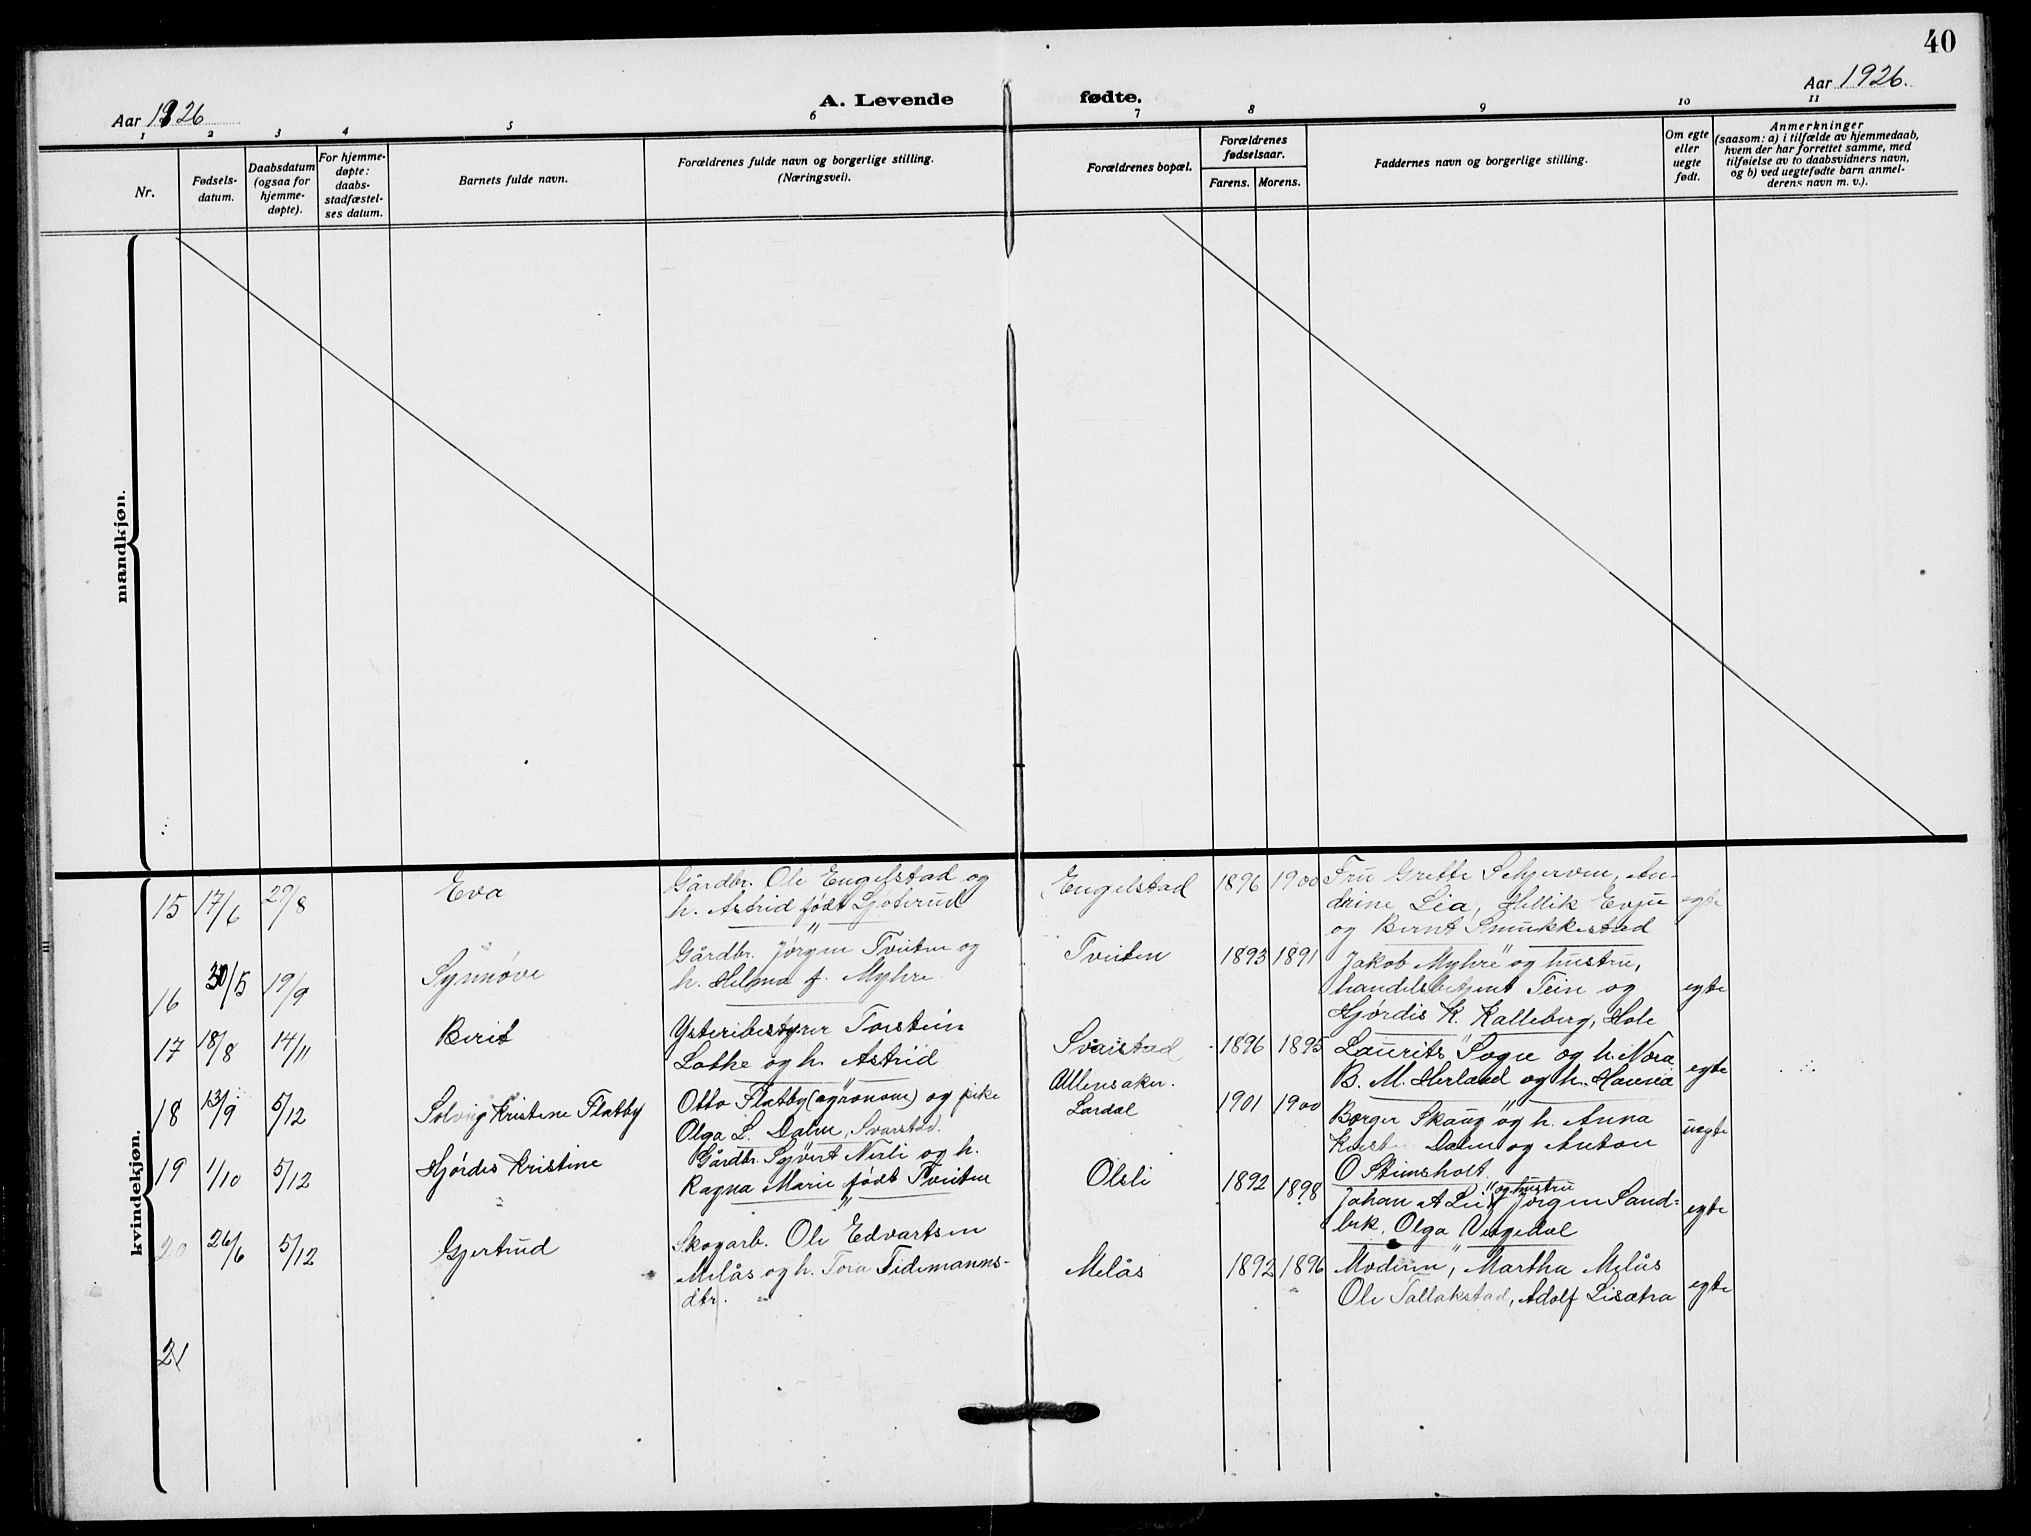 40
Aar 1926
A. Levende fødte.
Aar 1926.
1 2 3 4 5 6 7 8 9 10 11
Nr.
Fødsels-
datum.
Daabsdatum
(ogsaa for
hjemme-
døpte).
For hjemme-
døpte:
daabs-
stadfæstel-
ses datum.
Barnets fulde navn.
Forældrenes fulde navn og borgerlige stilling.
(Næringsvei).
Forældrenes bopæl.
Forældrenes
fødselsaar.
Farens. Morens.
Faddernes navn og borgerlige stilling.
Om egte
eller
uegte
født.
Anmerkninger
(saasom: a) i tilfælde av hjemmedaab,
hvem der har forrettet samme, med
tilføielse av to daabsvidners navn,
og b) ved uegtefødte barn anmel-
derens navn m. v.).
mandkjøn.
kvindekjøn.
15 17/6 29/8 Eva
Gårdbr. Ole Engelstad og
h. Astrid født
Engelstad 1896 1900
Fru Grette Schjerven, An-
drine Lia, Hellik Evju
og Bernt Smukkestad
egte
16 30/5 19/9 Synnøve
Gårdbr. Jørgen Tveiten og
h. Helma f. Myhre
Tveiten 1893 1891
Jakob Myhre og hustru,
handelsbetjent Tein og
Hjørdis K. Kalleberg, Hole
egte
17 18/8 14/11 Berit
Ysteribestyrer Torstein
Lothe og h. Astrid
Svarstad 1896 1895
Laurits Sogn og h. Nora
B. M. Herland og h.
egte
18 13/9 5/12 Solveig Kristine Flatby
Otto Flatby (agronom) og pike
Olga L. Dalen, Svarstad.
Ullensaker.
Lardal 1901 1900
Borger Skaug og h. Anna
Dalen og Anton
O Stimsholt
uegte
19 1/10 5/12 Hjørdis Kristine
Gårdbr. Syvert Nirli og h.
Ragna Marie født Tveiten
Olsli 1892 1898
og hustru
Johan A Lie, Jørgen Sand-
bek, Olga Vegedal
egte
20 26/6 5/12 Gjertrud
Skogarb. Ole Edvartsen
Melås og h. Tora Tidemanns-
dtr.
Melås 1892 1896
Moderen, Martha Melås
Ole Tallakstad, Adolf Lisætra
egte
21